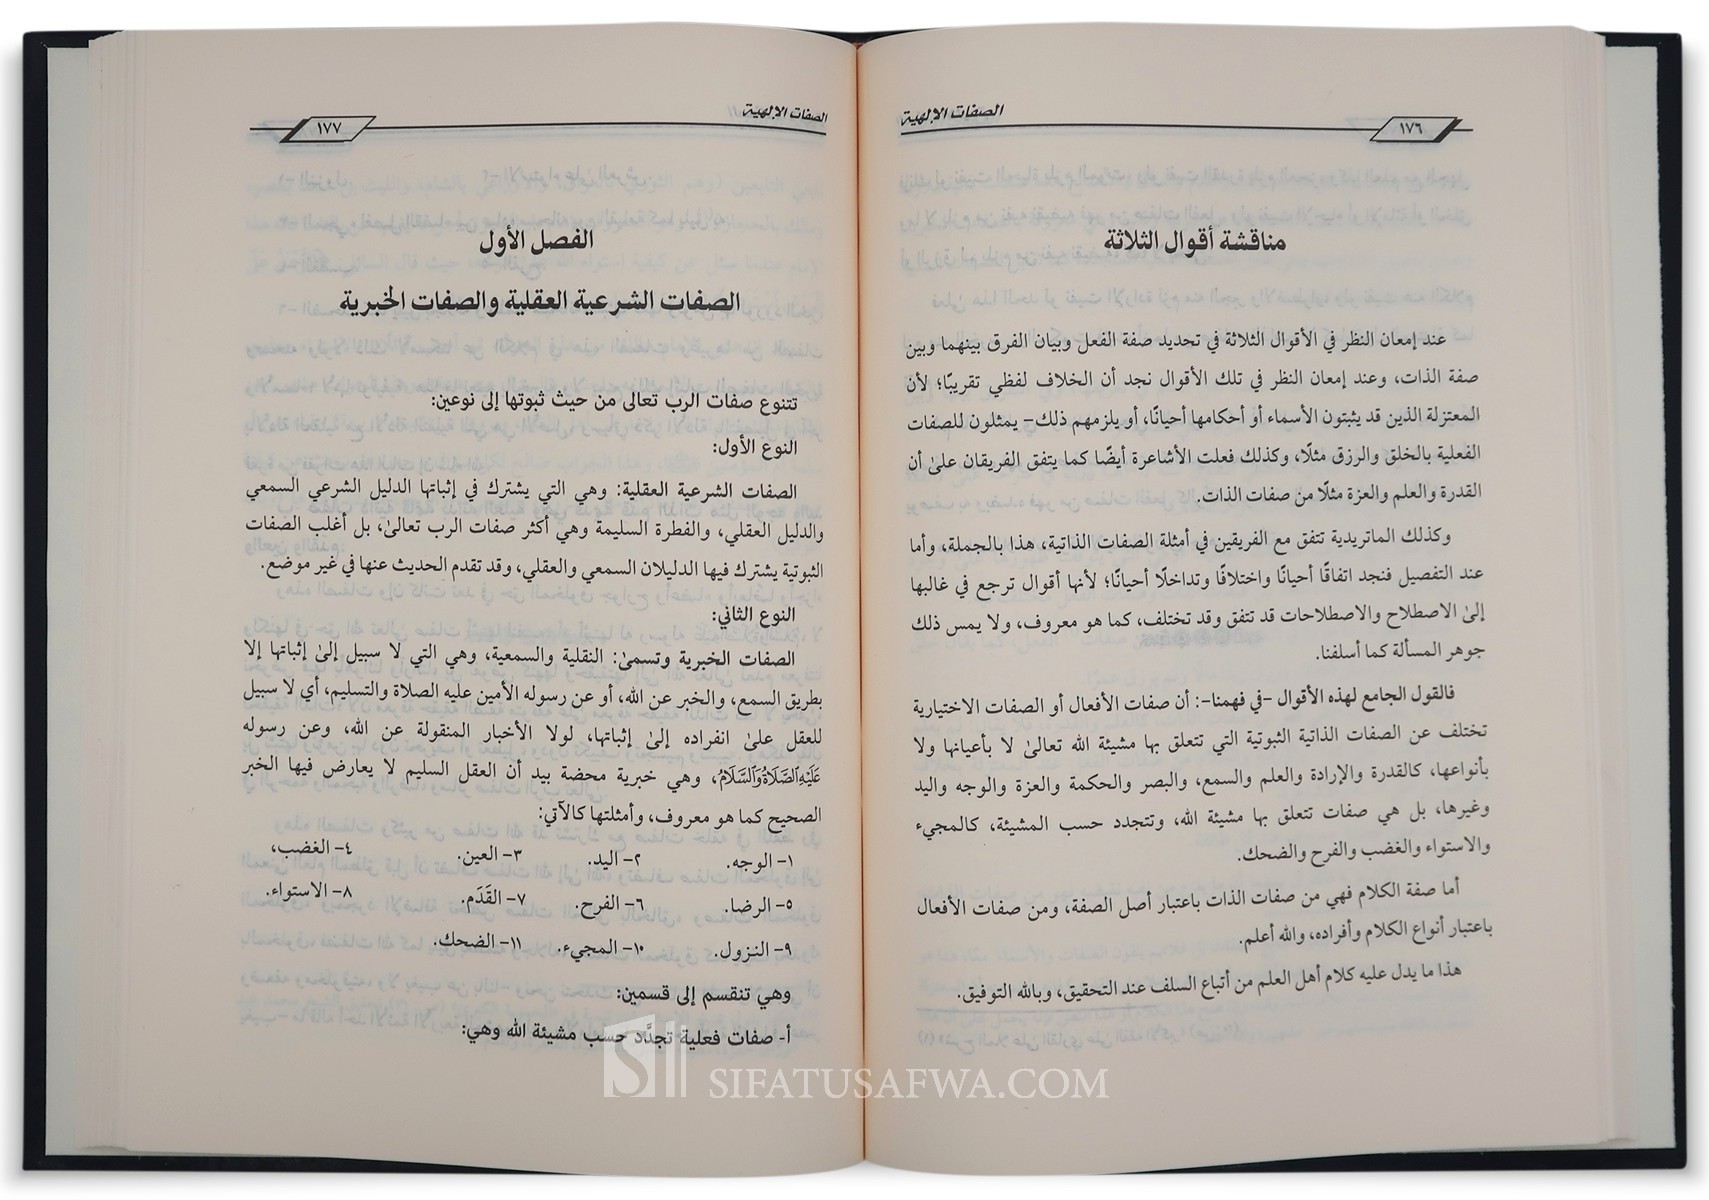 الصفات الإلهية
١٧٦
مناقشة أقوال الثلاثة
عند إمعان النظر في الأقوال الثلاثة في تحديد صفة الفعل وبيان الفرق بينهما وبين
صفة الذات، وعند إمعان النظر في تلك الأقوال نجد أن الخلاف لفظي تقريبًا؛ لأن
المعتزلة الذين قد يثبتون الأسماء أو أحكامها أحيانًا، أو يلزمهم ذلك- يمثلون للصفات
الفعلية بالخلق والرزق مثلًا، وكذلك فعلت الأشاعرة أيضًا كما يتفق الفريقان علىٰ أن
القدرة والعلم والعزة مثلًا من صفات الذات.
وكذلك الماتريدية تتفق مع الفريقين في أمثلة الصفات الذاتية، هذا بالجملة، وأما
عند التفصيل فنجد اتفاقًا أحيانًا واختلافًا وتداخلًا أحيانًا؛ لأنها أقوال ترجع في غالبها
إلىٰ الاصطلاح والاصطلاحات قد تتفق وقد تختلف، كما هو معروف، ولا يمس ذلك
جوهر المسألة كما أسلفنا.
فالقول الجامع لهذه الأقوال -في فهمنا-: أن صفات الأفعال أو الصفات الاختيارية
تختلف عن الصفات الذاتية الثبوتية التي تتعلق بها مشيئة الله تعالىٰ لا بأعيانها ولا
بأنواعها، كالقدرة والإرادة والعلم والسمع، والبصر والحكمة والعزة والوجه واليد
وغيرها، بل هي صفات تتعلق بها مشيئة الله، وتتجدد حسب المشيئة، كالمجيء
والاستواء والغضب والفرح والضحك.
أما صفة الكلام فهي من صفات الذات باعتبار أصل الصفة، ومن صفات الأفعال
باعتبار أنواع الكلام وأفراده، والله أعلم.
هذا ما يدل عليه كلام أهل العلم من أتباع السلف عند التحقيق، وبالله التوفيق.
الصفات الإلهية
١٧٧
الفصل الأول
الصفات الشرعية العقلية والصفات الخبرية
تتنوع صفات الرب تعالى من حيث ثبوتها إلى نوعين:
النوع الأول:
الصفات الشرعية العقلية: وهي التي يشترك في إثباتها الدليل الشرعي السمعي
والدليل العقلي، والفطرة السليمة وهي أكثر صفات الرب تعالىٰ، بل أغلب الصفات
الثبوتية يشترك فيها الدليلان السمعي والعقلي، وقد تقدم الحديث عنها في غير موضع.
النوع الثاني:
الصفات الخبرية وتسمىٰ: النقلية والسمعية، وهي التي لا سبيل إلىٰ إثباتها إلا
بطريق السمع، والخبر عن الله، أو عن رسوله الأمين عليه الصلاة والتسليم، أي لا سبيل
للعقل علىٰ انفراده إلىٰ إثباتها، لولا الأخبار المنقولة عن الله، وعن رسوله
عَلَيْهِ ٱلصَّلَاةُ وَٱلسَّلَامُ، وهي خبرية محضة بيد أن العقل السليم لا يعارض فيها الخبر
الصحيح كما هو معروف، وأمثلتها كالآتي:
١- الوجه. ٢- اليد. ٣- العين. ٤- الغضب،
٥- الرضا. ٦- الفرح. ٧- القَدَم. ٨- الاستواء.
٩- النزول. ١٠- المجيء. ١١- الضحك.
وهي تنقسم إلى قسمين:
أ- صفات فعلية تجدَّد حسب مشيئة الله وهي:
SIFATUSAFWA.COM